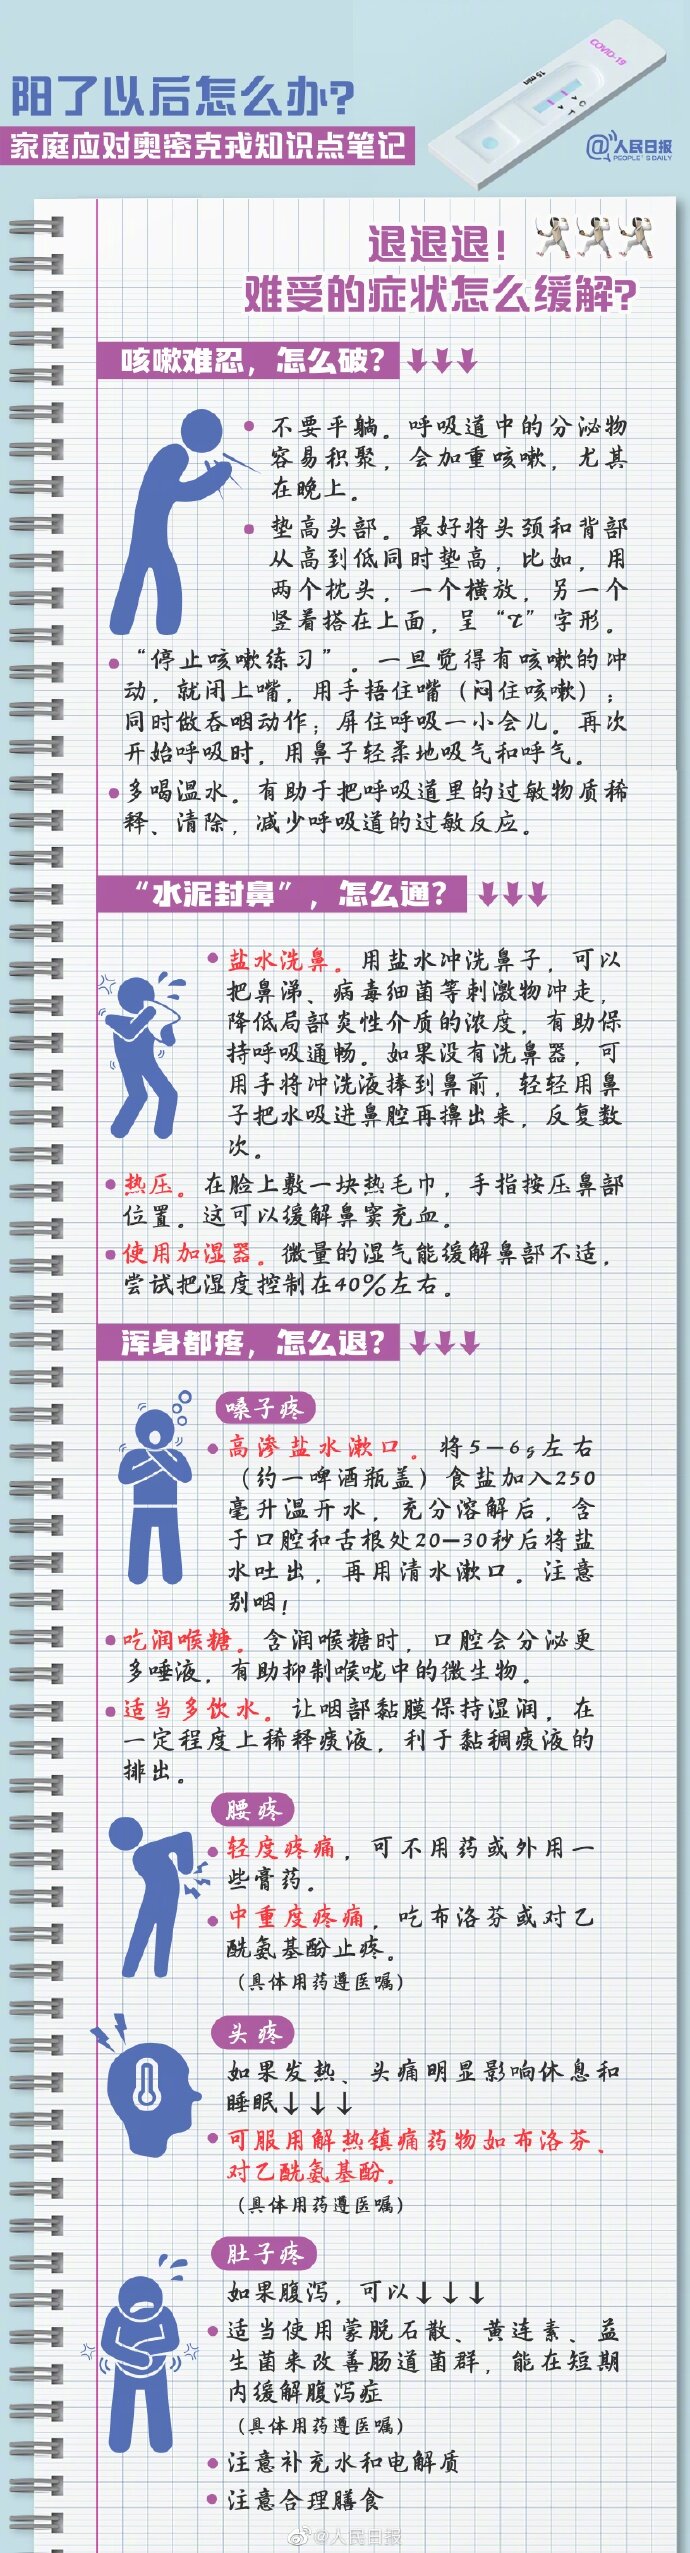 阳了以后怎么办?
家庭应对奥密克戎知识点笔记
COVID-19
15 min
C
T
@人民日报
PEOPLE'S DAILY
退退退!
难受的症状怎么缓解?
咳嗽难忍，怎么破?
不要平躺。呼吸道中的分泌物
容易积聚，会加重咳嗽，尤其
在晚上。
垫高头部。最好将头颈和背部
从高到低同时垫高，比如，用
两个枕头，一个横放，另一个
竖着搭在上面，呈“t”字形。
“停止咳嗽练习”。一旦觉得有咳嗽的冲
动，就闭上嘴，用手捂住嘴（闷住咳嗽）；
同时做吞咽动作；屏住呼吸一小会儿。再次
开始呼吸时，用鼻子轻柔地吸气和呼气。
多喝温水。有助于把呼吸道里的过敏物质稀
释、清除，减少呼吸道的过敏反应。
“水泥封鼻”，怎么通?
盐水洗鼻。用盐水冲洗鼻子，可以
把鼻涕、病毒细菌等刺激物冲走，
降低局部炎性介质的浓度，有助保
持呼吸通畅。如果没有洗鼻器，可
用手将冲洗液捧到鼻前，轻轻用鼻
子把水吸进鼻腔再擤出来，反复数
次。
热压。在脸上敷一块热毛巾，手指按压鼻部
位置。这可以缓解鼻窦充血。
使用加湿器。微量的湿气能缓解鼻部不适，
尝试把湿度控制在40%左右。
浑身都疼，怎么退?
嗓子疼
高渗盐水漱口。将5—6g左右
（约一啤酒瓶盖）食盐加入250
毫升温开水，充分溶解后，含
于口腔和舌根处20—30秒后将盐
水吐出，再用清水漱口。注意
别咽!
吃润喉糖。含润喉糖时，口腔会分泌更
多唾液，有助抑制喉咙中的微生物。
适当多饮水。让咽部黏膜保持湿润，在
一定程度上稀释痰液，利于黏稠痰液的
排出。
腰疼
轻度疼痛，可不用药或外用一
些膏药。
中重度疼痛，吃布洛芬或对乙
酰氨基酚止疼。
（具体用药遵医嘱）
头疼
如果发热、头痛明显影响休息和
睡眠↓↓↓
可服用解热镇痛药物如布洛芬、
对乙酰氨基酚。
（具体用药遵医嘱）
肚子疼
如果腹泻，可以↓↓↓
适当使用蒙脱石散、黄连素、益
生菌来改善肠道菌群，能在短期
内缓解腹泻症
（具体用药遵医嘱）
注意补充水和电解质
注意合理膳食
@人民日报